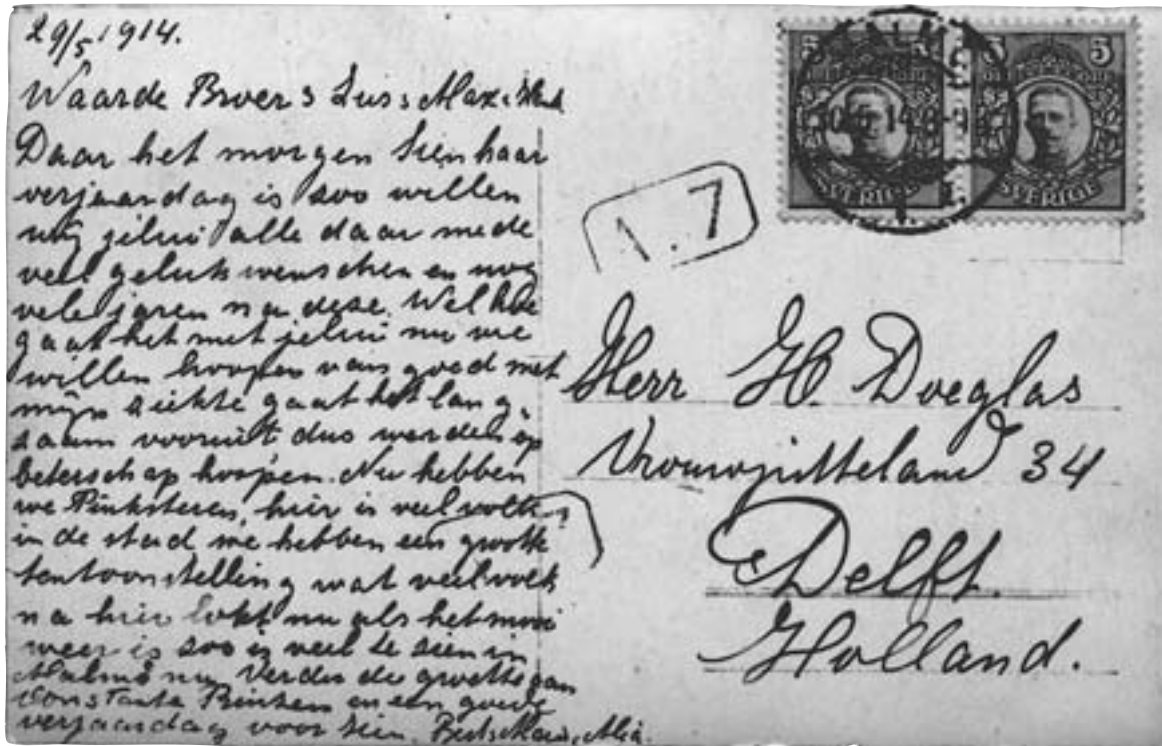 29/5 1914.
Waarde Broer & Zus, Max,
Daar het morgen Sien haar
verjaardag is soo willen
wij jelui alle daar mede
veel geluk wenschen en nog
vele jaren na dese. Wel hoe
gaat het met jelui nu we
willen hoopen van goed met
mijn siekte gaat het lang-
saam vooruit dus werden op
beterschap hoopen. Nu hebben
we Pinksteren, hier is veel volk
in de stad we hebben een groote
tentoonstelling wat veel volk
na hier lokt nu als het mooi
weer is soo is veel te sien in
Malmö nu verder de groete van
Tante en een goede
verjaardag voor Sien.
5 5
SVERIGE SVERIGE
1.7
Herr H. Doeglas
34
Delft.
Holland.